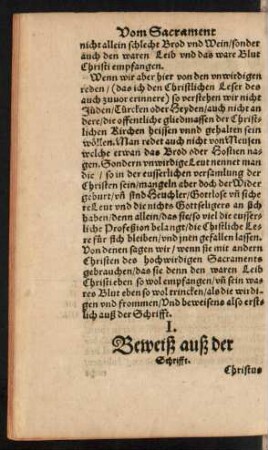 Vom Sacrament
nicht allein schlecht Brod vnd Wein/sonder
auch den waren Leib vnd das ware Blut
Christi empfangen.
Wenn wir aber hier von den vnwirdigen
reden/(das ich den Christlichen Leser des
auch zuuor erinnere) so verstehen wir nicht
Jüden/Türcken oder Heyden/auch nicht an
dere/die offentliche gliedmassen der Christ-
lichen Kirchen heissen vnnd gehalten sein
wöllen. Man redet auch nicht von Meusen
welche etwan das Brod oder Hostien nas
gen. Sondern vnwirdige Leut nennet man
die/so in der eusserlichen versamlung der
Christen sein/mangeln aber doch der Wider
geburt/vñ sind Heuchler/Gottlose vñ siche
re Leut vnd die nichts Gottseligers an sich
haben/denn allein/das sie/so viel die eusser-
liche Profession belangt/die Christliche Le-
re für sich bleiben/vnd jnen gefallen lassen.
Von denen sagen wir/wenn sie mit andern
Christen des hochwirdigen Sacraments
gebrauchen/das sie denn den waren Leib
Christi eben so wol empfangen/vñ sein wa-
res Blut eben so wol trincken/als die wirdi-
gen vnd frommen/Vnd beweisens also erst-
lich auß der Schrifft.
I.
Beweiß auß der
Schrifft.
Christus